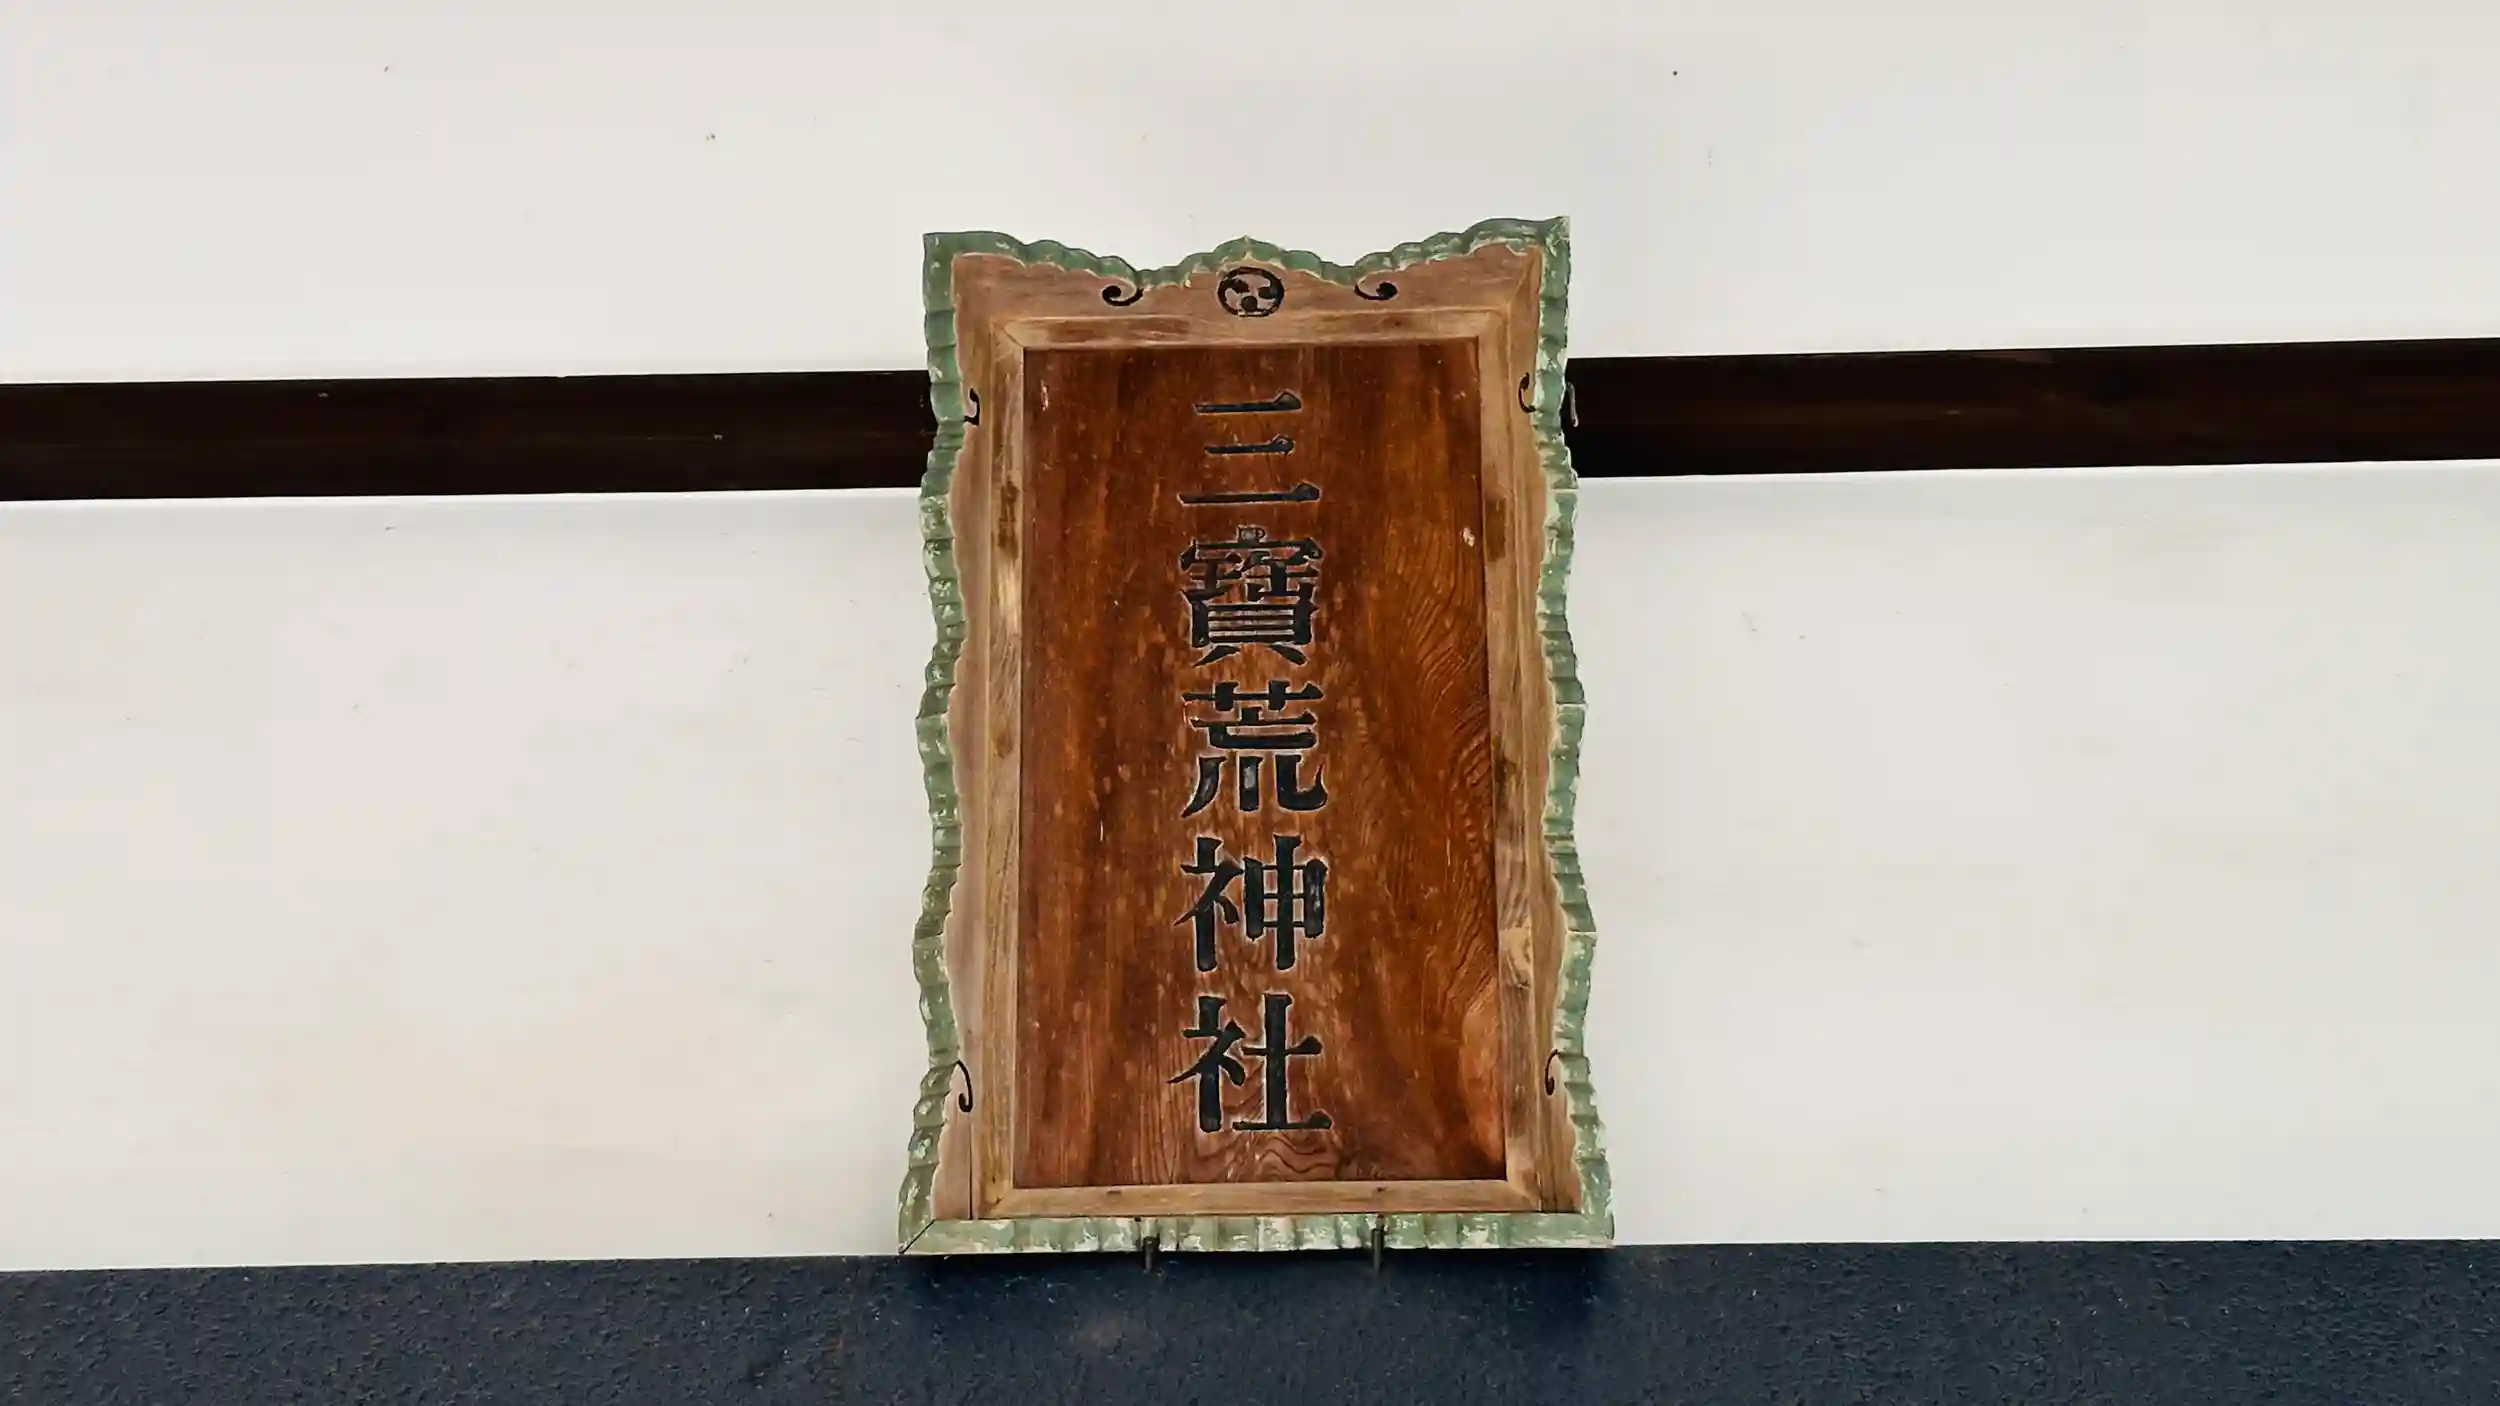 三寶荒神社